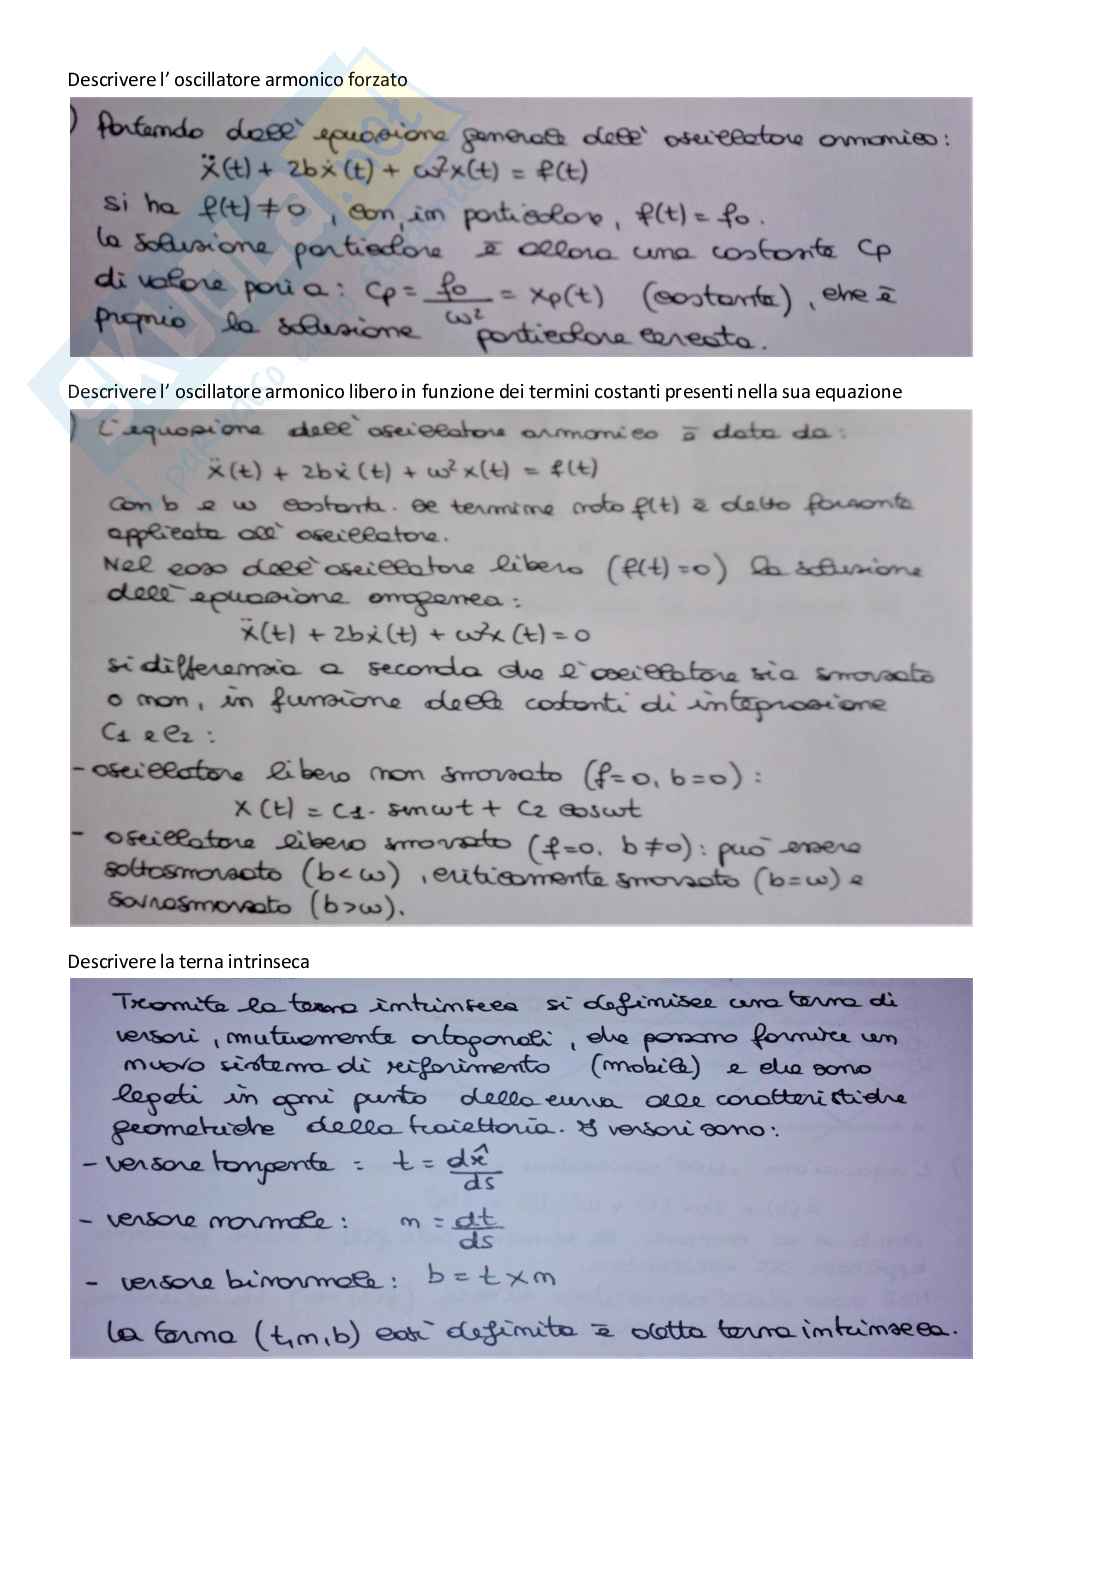 Descrivere l' oscillatore armonico forzato
) Partendo dall' equazione generale dell' oscillatore armonico:
ẍ(t) + 2bẋ(t) + ω²x(t) = f(t)
si ha f(t) ≠ 0, con, in particolare, f(t) = f₀.
la soluzione particolare è allora una costante Cp
di valore pari a: Cp = f₀/ω² = xp(t) (costante), che è
proprio la soluzione particolare cercata.
Descrivere l' oscillatore armonico libero in funzione dei termini costanti presenti nella sua equazione
) L'equazione dell' oscillatore armonico è data da:
ẍ(t) + 2bẋ(t) + ω²x(t) = f(t)
con b e ω costanti. Il termine noto f(t) è detto forzante
applicata all' oscillatore.
Nel caso dell'oscillatore libero (f(t)=0) la soluzione
dell'equazione omogenea:
ẍ(t) + 2bẋ(t) + ω²x(t) = 0
si differenzia a seconda che l'oscillatore sia smorzato
o non, in funzione delle costanti di integrazione
C₁ e C₂:
- oscillatore libero non smorzato (f=0, b=0):
x(t) = C₁· sinωt + C₂ cosωt
- oscillatore libero smorzato (f=0, b≠0): può essere
sottosmorzato (b<ω), criticamente smorzato (b=ω) e
sovrasmorzato (b>ω).
Descrivere la terna intrinseca
Tramite la terna intrinseca si definisce una terna di
versori, mutuamente ortogonali, che possono fornire un
nuovo sistema di riferimento (mobile) e che sono
legati in ogni punto della curva alle caratteristiche
geometriche della traiettoria. I versori sono:
- versore tangente = t = dx̂/ds
- versore normale: n = dt/ds
- versore binormale: b = t × n
la terna (t,n,b) così definita è detta terna intrinseca.
SKUOLA.net